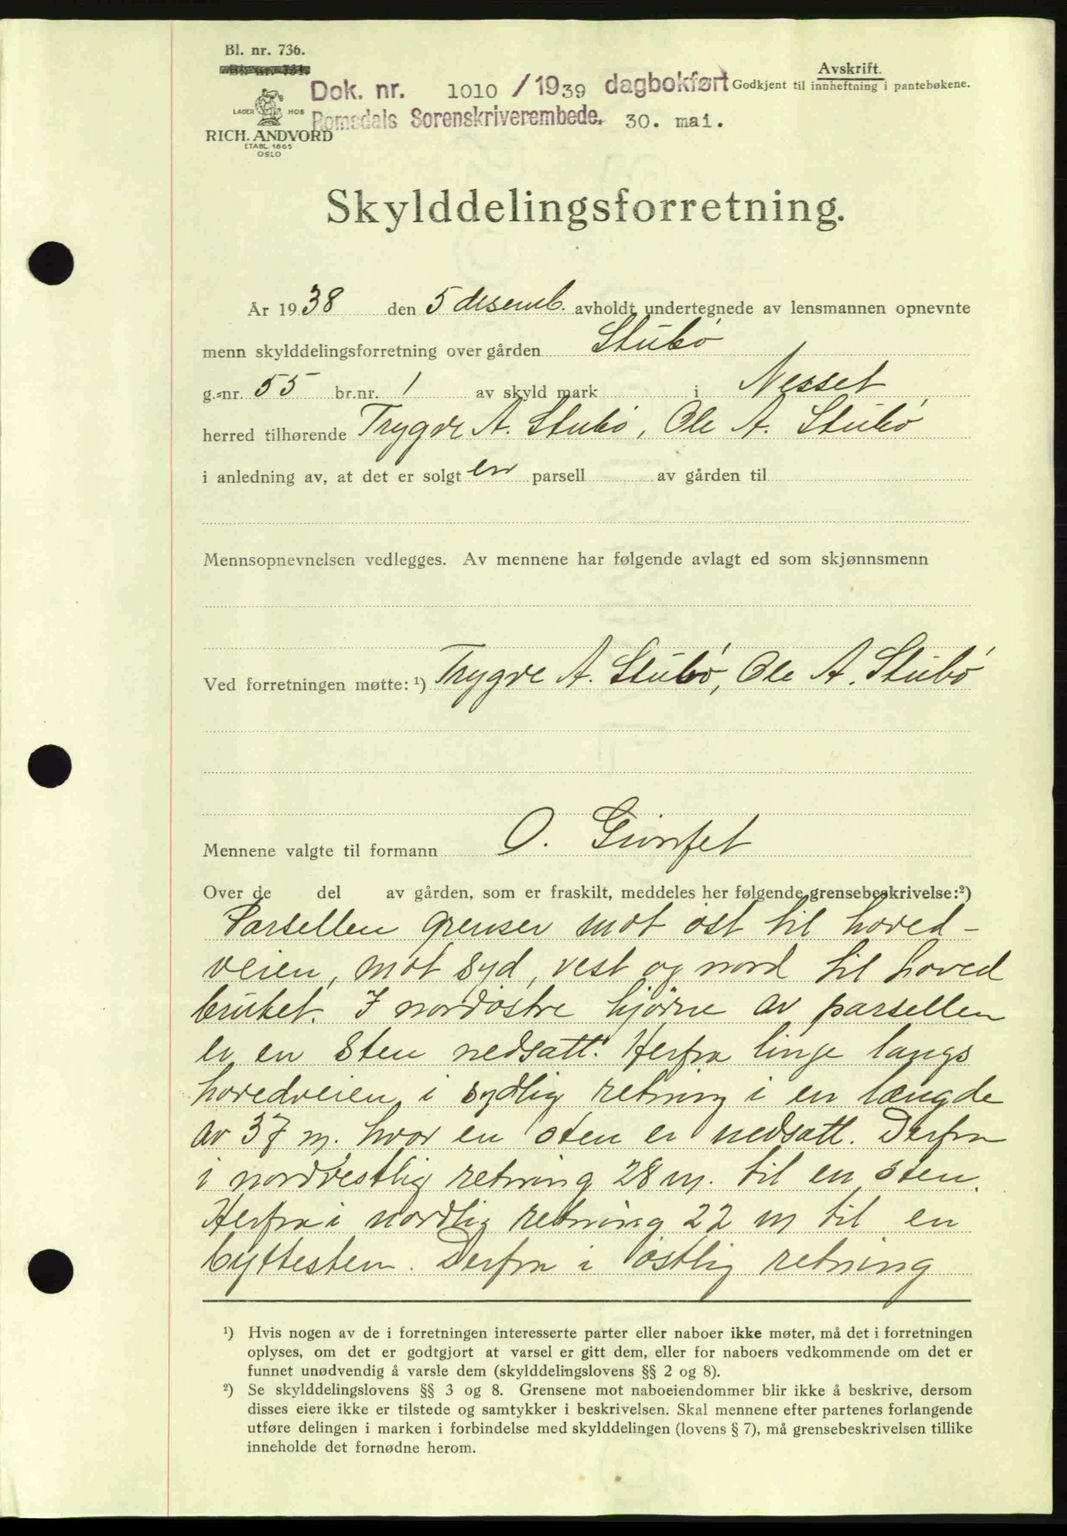 Bl. nr. 736.
Avskrift.
Dok. nr. 1010 / 1939 dagbokført Godkjent til innheftning i pantebøkene.
LAGER HOS
Romsdals Sorenskriverembede. 30. mai.
RICH. ANDVORD
ETABL. 1865
OSLO
Skylddelingsforretning.
År 1938 den 5 desemb. avholdt undertegnede av lensmannen opnevnte
menn skylddelingsforretning over gården Stubø
g.-nr. 55 br.nr. 1 av skyld mark i Nesset
herred tilhørende Trygve A. Stubø, Ole A. Stubø
i anledning av, at det er solgt en parsell av gården til
Mennsopnevnelsen vedlegges. Av mennene har følgende avlagt ed som skjønnsmenn
Ved forretningen møtte: ¹) Trygve A. Stubø, Ole A. Stubø
Mennene valgte til formann O.
Over de del av gården, som er fraskilt, meddeles her følgende grensebeskrivelse:²)
Parsellen grenser mot øst til hoved-
veien, mot syd, vest og nord til hoved
bruket. I nordøstre hjørne av parsellen
er en sten nedsatt. Herfra linje langs
hovedveien i sydlig retning i en længde
av 37 m. hvor en sten er nedsatt. Derfra
i nordvestlig retning 28 m. til en sten.
Herfra i nordlig retning 22 m til en
byttesten. Derfra i østlig retning
¹) Hvis nogen av de i forretningen interesserte parter eller naboer ikke møter, må det i forretningen
oplyses, om det er godtgjort at varsel er gitt dem, eller for naboers vedkommende om det er
funnet unødvendig å varsle dem (skylddelingslovens §§ 2 og 8).
²) Se skylddelingslovens §§ 3 og 8. Grensene mot naboeiendommer blir ikke å beskrive, dersom
disses eiere ikke er tilstede og samtykker i beskrivelsen. Skal mennene efter partenes forlangende
utføre delingen i marken i forbindelse med skylddelingen (lovens § 7), må grensebeskrivelsen tillike
inneholde det fornødne herom.